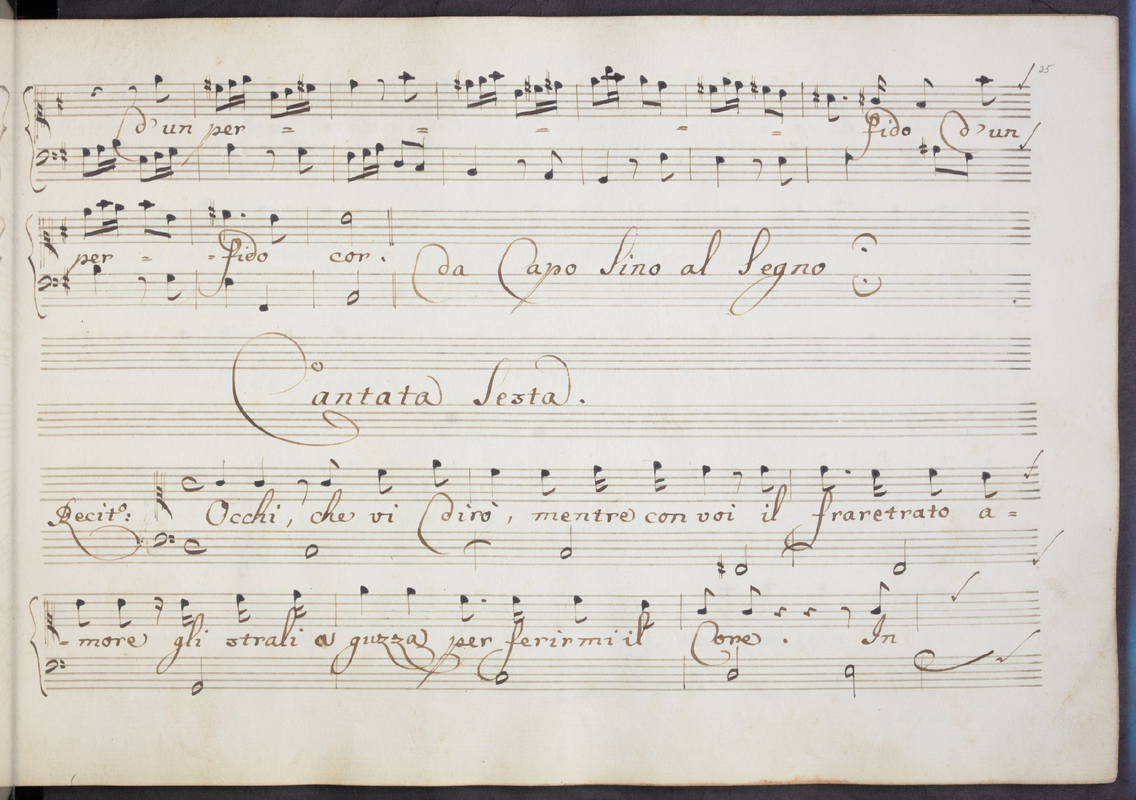 25
d'un per - - - - - fido d'un
per - - fido cor. da Capo sino al segno
Cantata Sesta.
Recit.º: Occhi, che vi dirò, mentre con voi il fraretrato a=
-more gli strali aguzza per ferirmi il Core. In